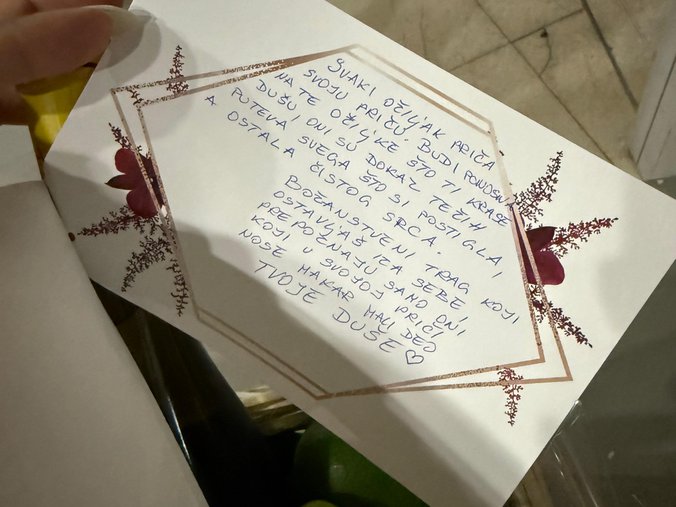 SVAKI OŽILJAK PRIČA
SVOJU PRIČU. BUDI PONOSNA
NA TE OŽILJKE ŠTO TI KRASE
DUŠU, ONI SU DOKAZ TEŽIH
PUTEVA, SVEGA ŠTO SI POSTIGLA,
A OSTALA ČISTOG SRCA.
BOŽANSTVENI TRAG KOJI
OSTAVLJAŠ IZA SEBE
PREPOZNAJU SAMO ONI
KOJI U SVOJOJ PRIČI
NOSE MAKAR MALI DEO
TVOJE DUŠE ♡